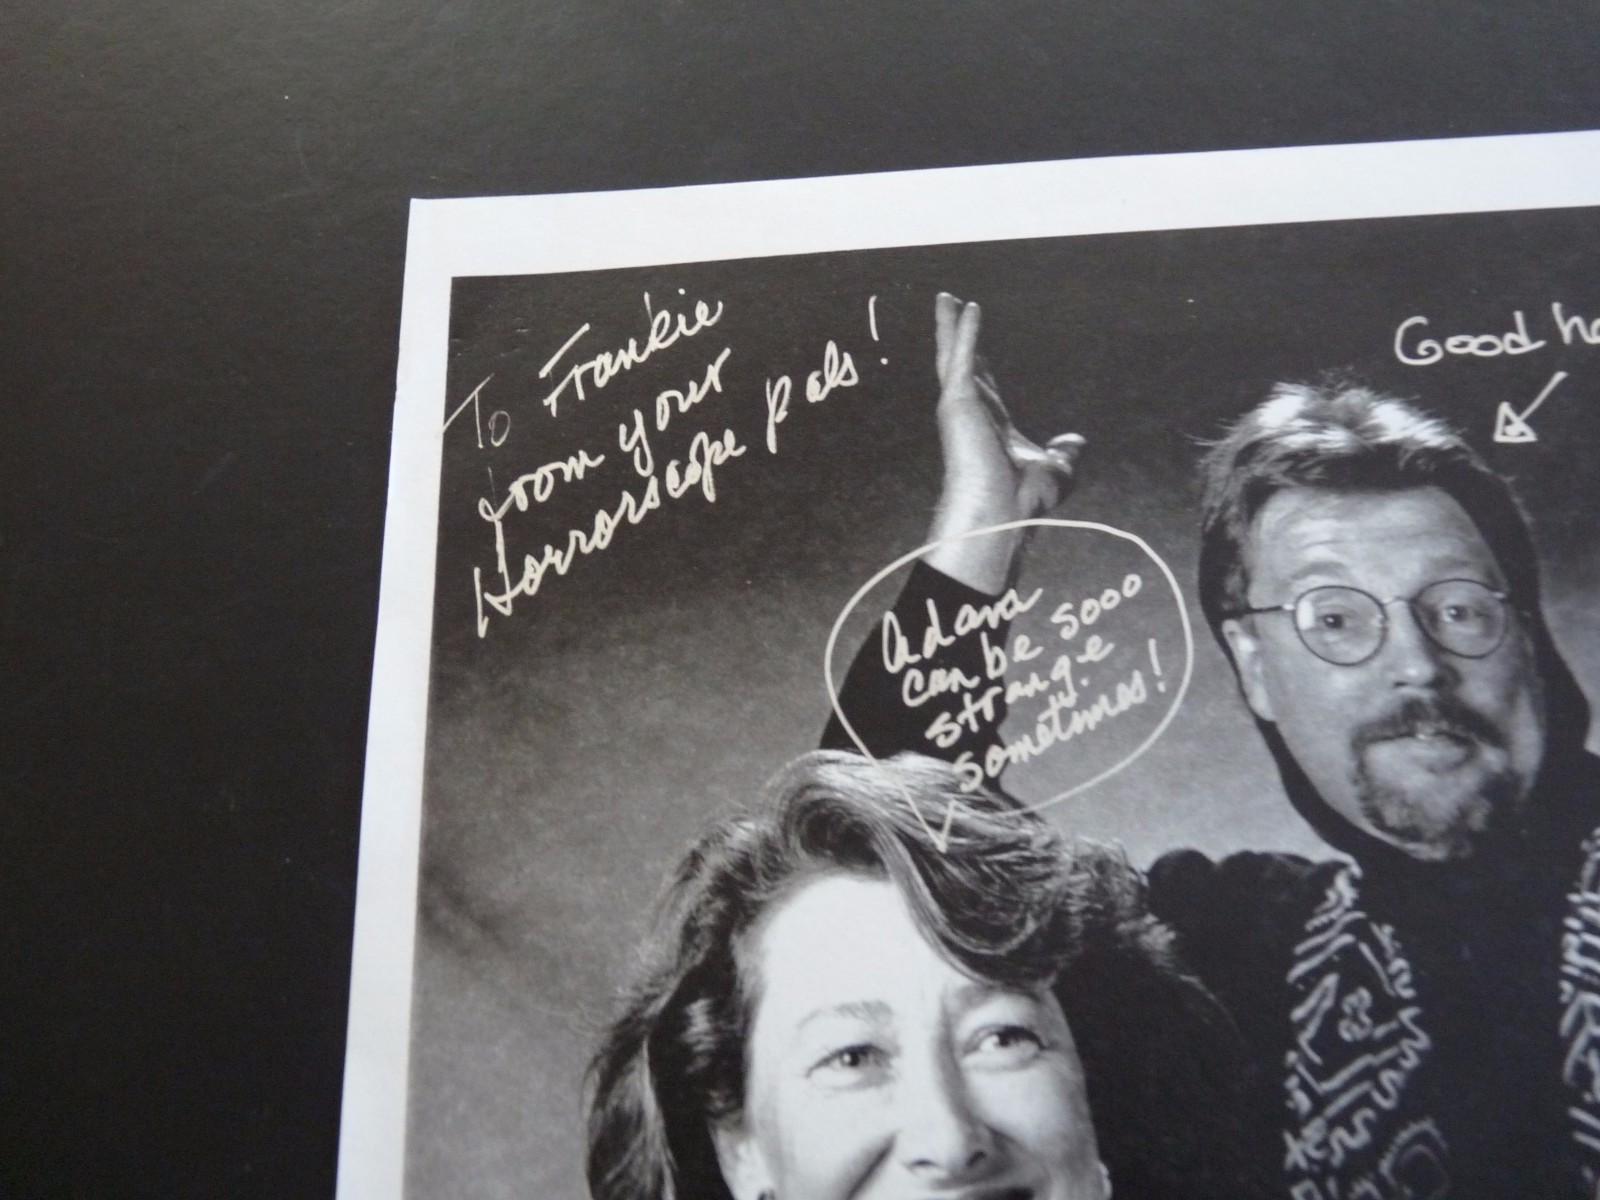 To Frankie
from your
Horrorscope pals!
Good
Adam
can be sooo
strange
sometimes!